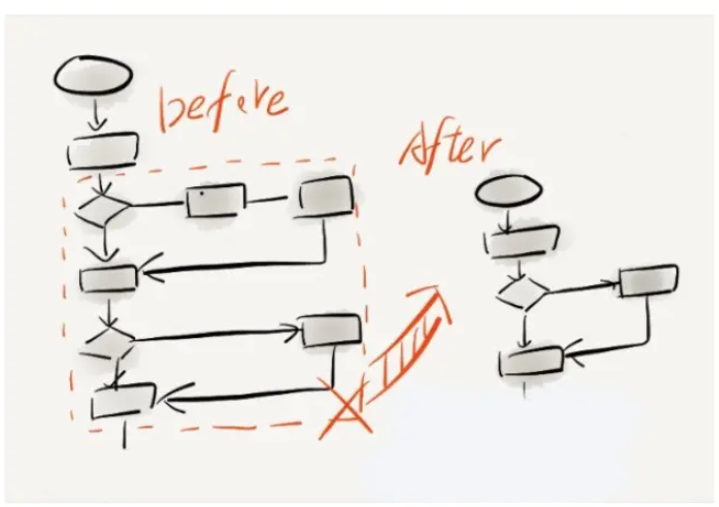 before
After